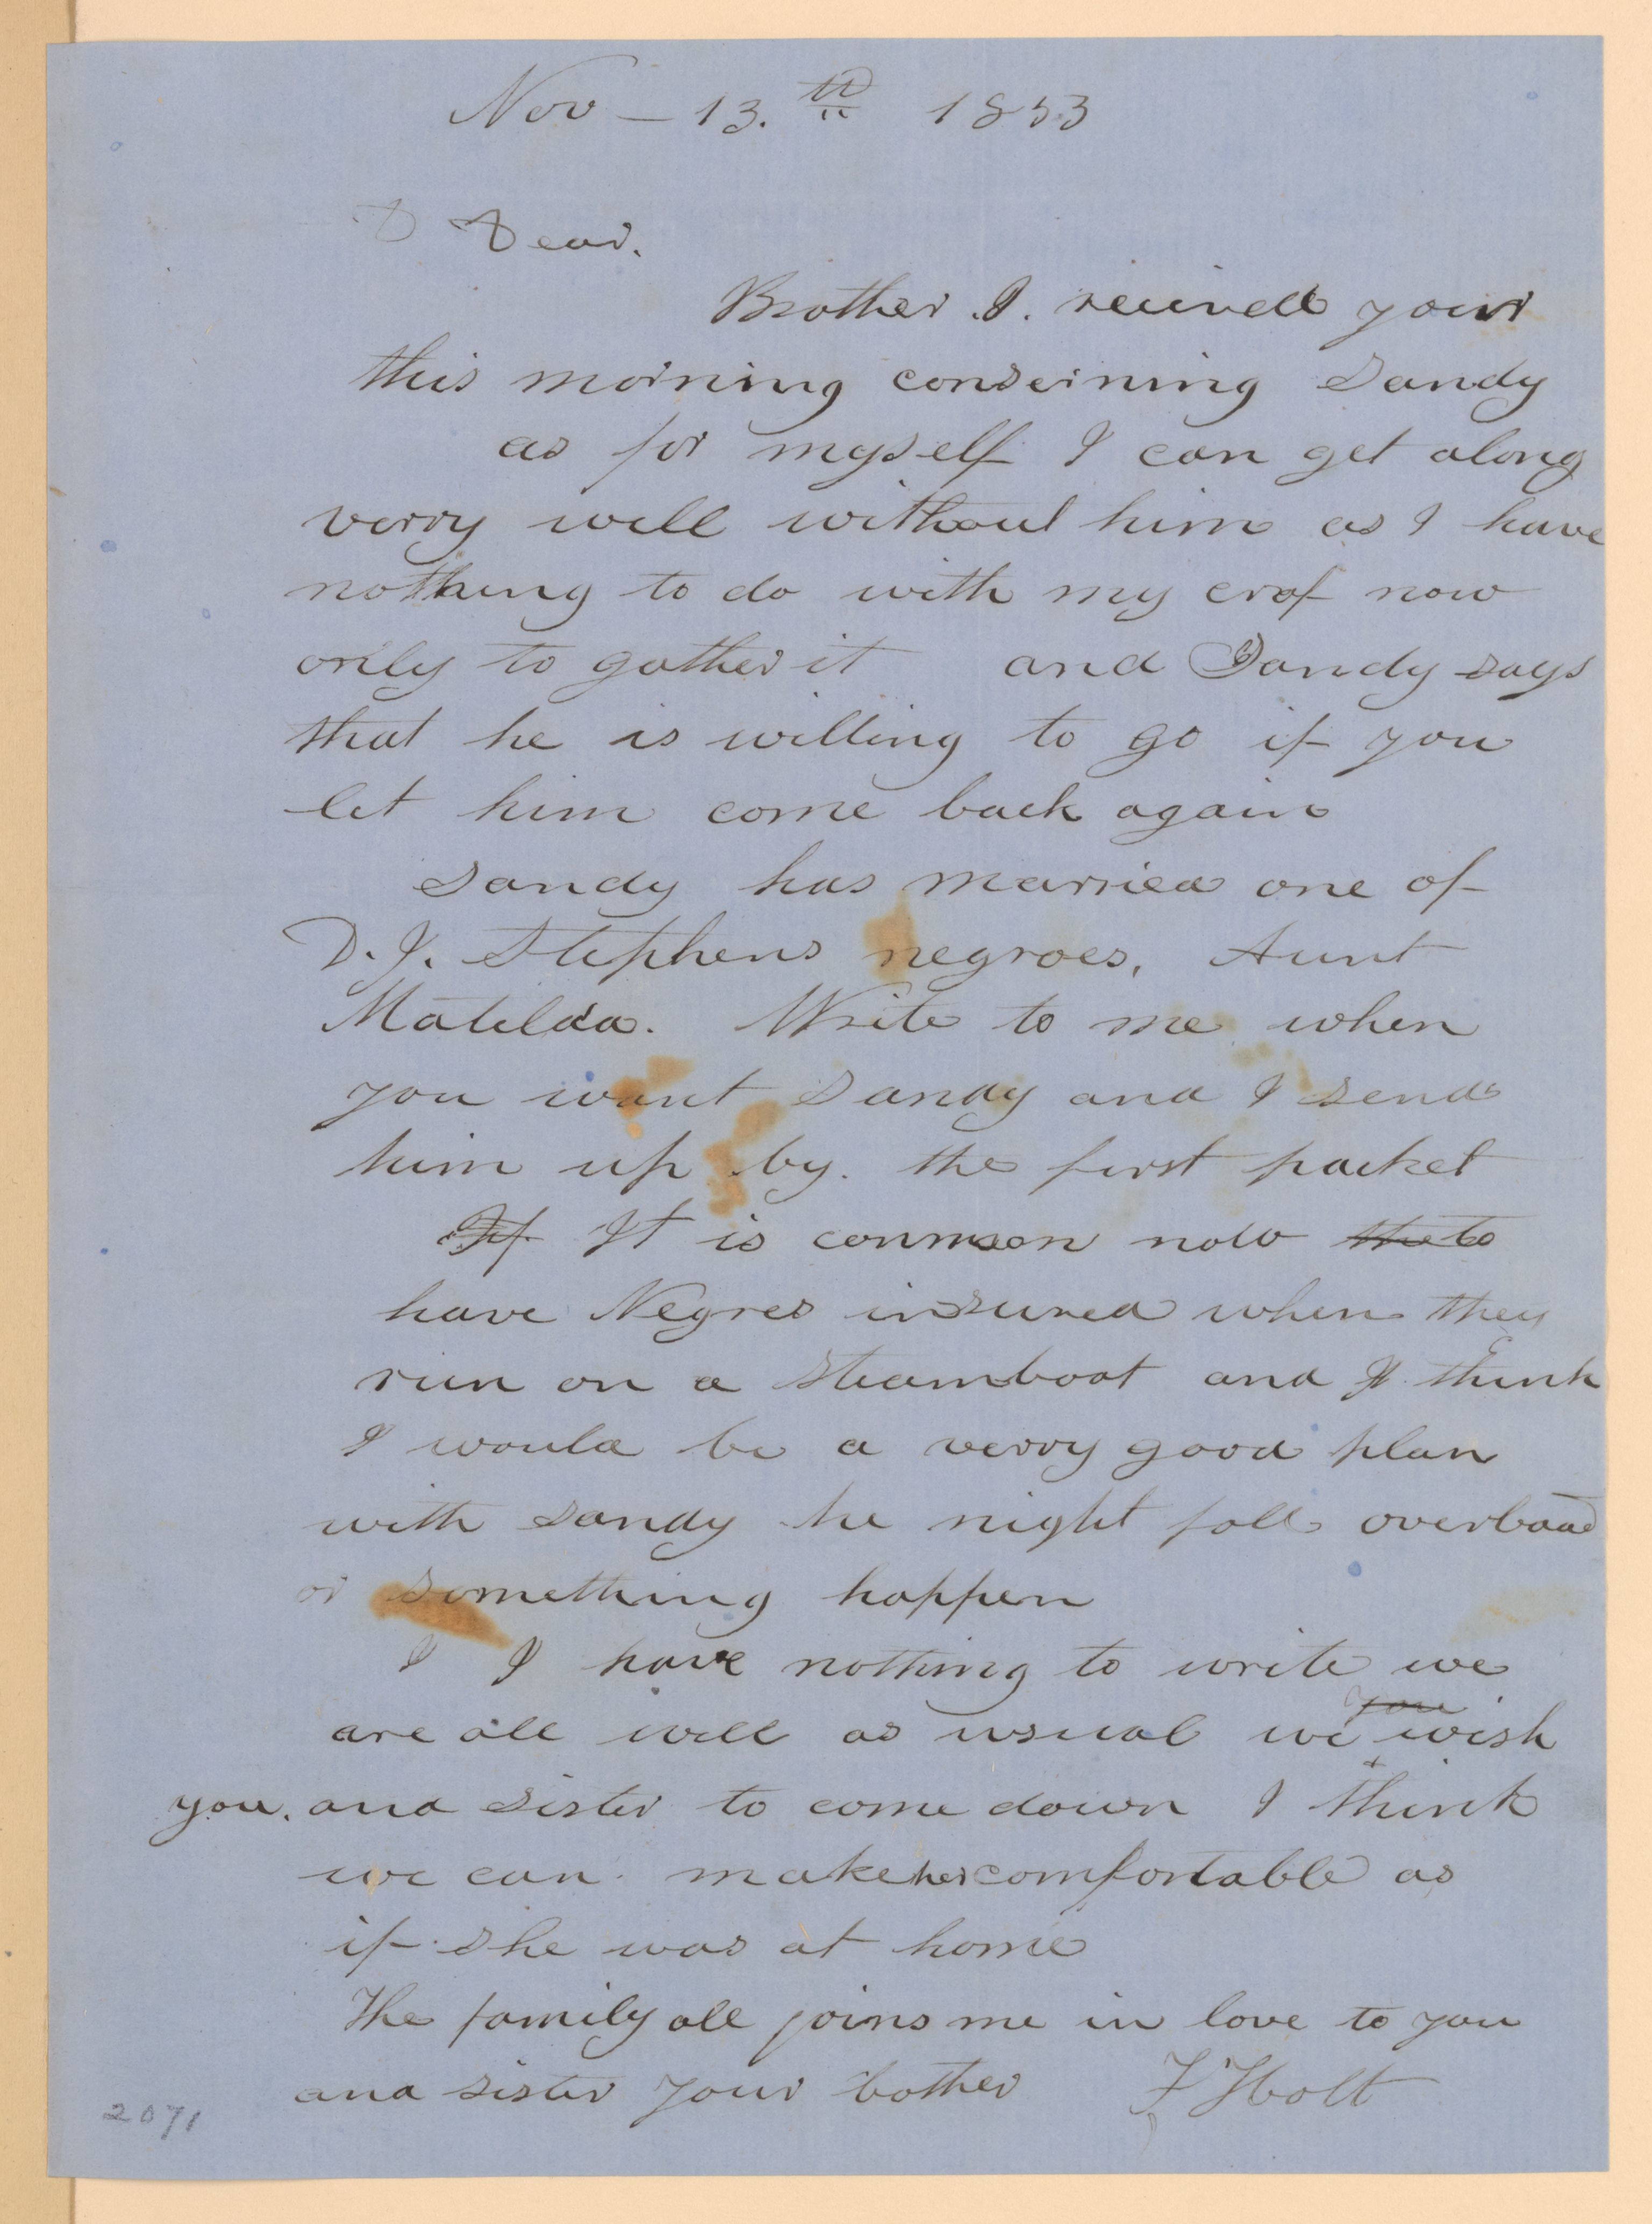 Nov — 13.th 1853
D Dear.
Brother .I. recived your
this morning conserning Sandy
as for myself I can get along
verry well without him as I have
nothing to do with my crop now
only to gather it and Sandy says
that he is willing to go if you
let him come back again
Sandy has married one of
D. J. Stephens negroes, Aunt
Matilda. Write to me when
you want Sandy and I send
him up by. the first packet
If It is common now the to
have Negres insured when they
run on a Steamboat and I think
I would be a verry good plan
with Sandy he might fall overboad
or something happen
I I have nothing to write we
are all well as usual we you wish
you. and sister to come down I think
we can make her comfortable as
if she was at home
The family all joins me in love to you
and sister your bother T Holt
2071